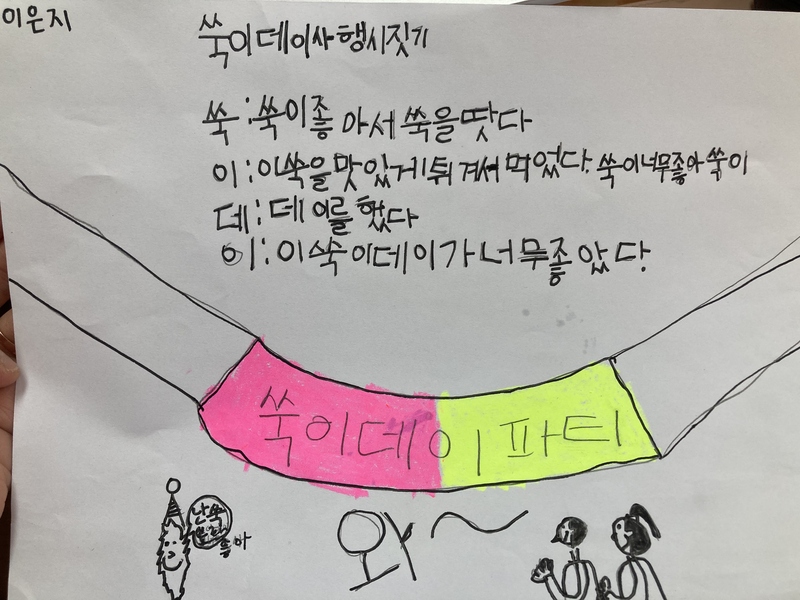 이은지
쑥이데이사행시짓기
쑥:쑥이좋아서쑥을땃다
이:이쑥을맛있게튀겨서먹었다.쑥이너무좋아쑥이
데:데이를했다
이:이쑥이데이가너무좋았다.
쑥이데이파티
난쑥
좋아